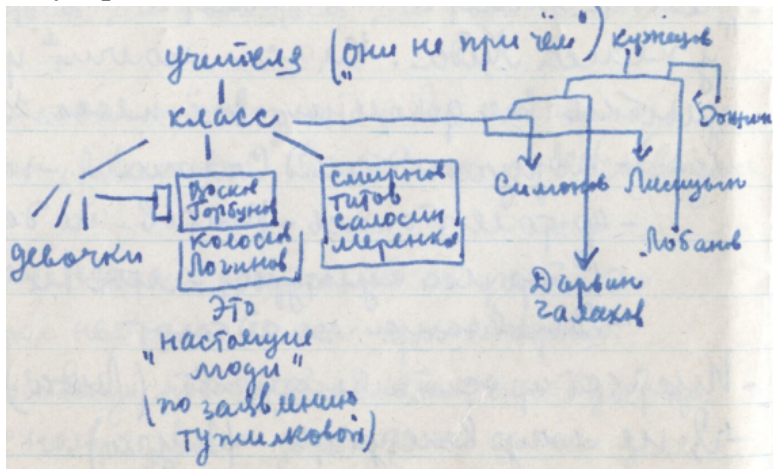 учителя ("они не при чём") Кузнецов
класс
девочки
Горбунов
Колосов
Логинов
Смирнов
Титов
Салосин
Меренков
Симонов Лисицын
Лобанов
Дарвин
Галахов
Это
"настоящие
люди"
(по заявлению
Тужилковой)